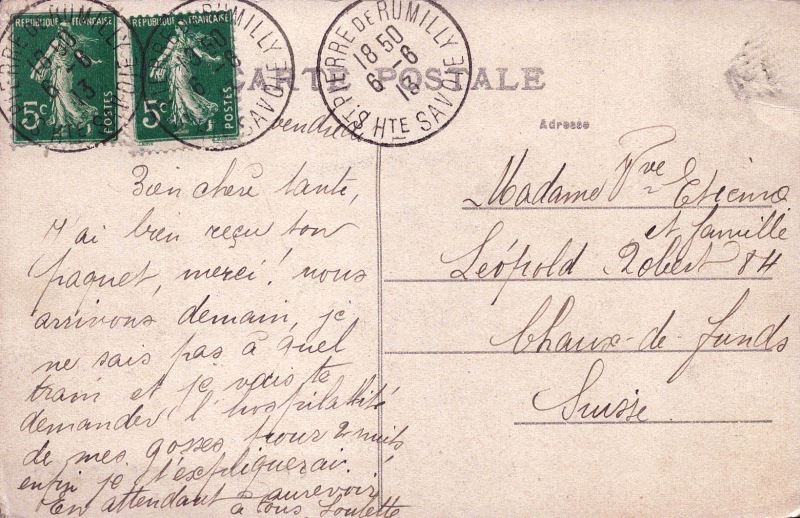 RÉPUBLIQUE FRANÇAISE
5c POSTES
RÉPUBLIQUE FRANÇAISE
5c POSTES
ST PIERRE DE RUMILLY
18 50
6 - 6
13
HTE SAVOIE
CARTE POSTALE
Adresse
vendredi
Bien chère tante,
J'ai bien reçu ton
paquet, merci! nous
arrivons demain, je
ne sais pas à quel
train et je vais te
demander l'hospitalité
de mes gosses pour 2 nuits,
enfin je t'expliquerai.
En attendant aurevoir
à tous, Loulette
Madame Vve Etienne
et famille
Léopold Robert 84
Chaux-de-fonds
Suisse